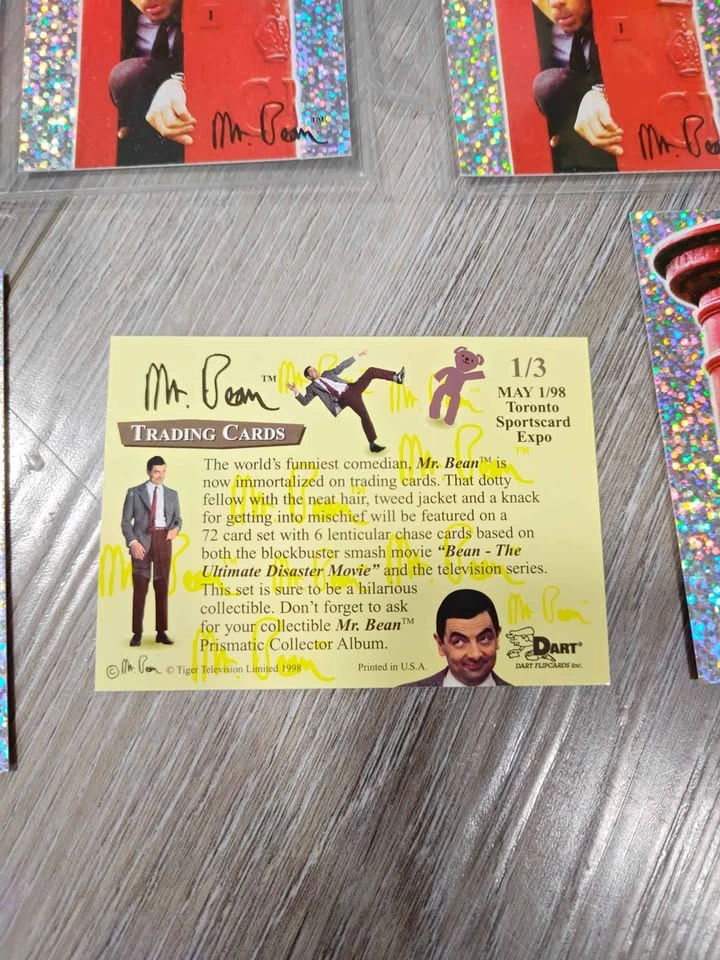 1
Mr. Bean™
1
Mr. Bea
Mr. Bean™
TRADING CARDS
1/3
MAY 1/98
Toronto
Sportscard
Expo
The world's funniest comedian, Mr. Bean™ is
now immortalized on trading cards. That dotty
fellow with the neat hair, tweed jacket and a knack
for getting into mischief will be featured on a
72 card set with 6 lenticular chase cards based on
both the blockbuster smash movie “Bean - The
Ultimate Disaster Movie” and the television series.
This set is sure to be a hilarious
collectible. Don't forget to ask
for your collectible Mr. Bean™
Prismatic Collector Album.
© Mr. Bean © Tiger Television Limited 1998
Printed in U.S.A.
DART®
DART FLIPCARDS INC.